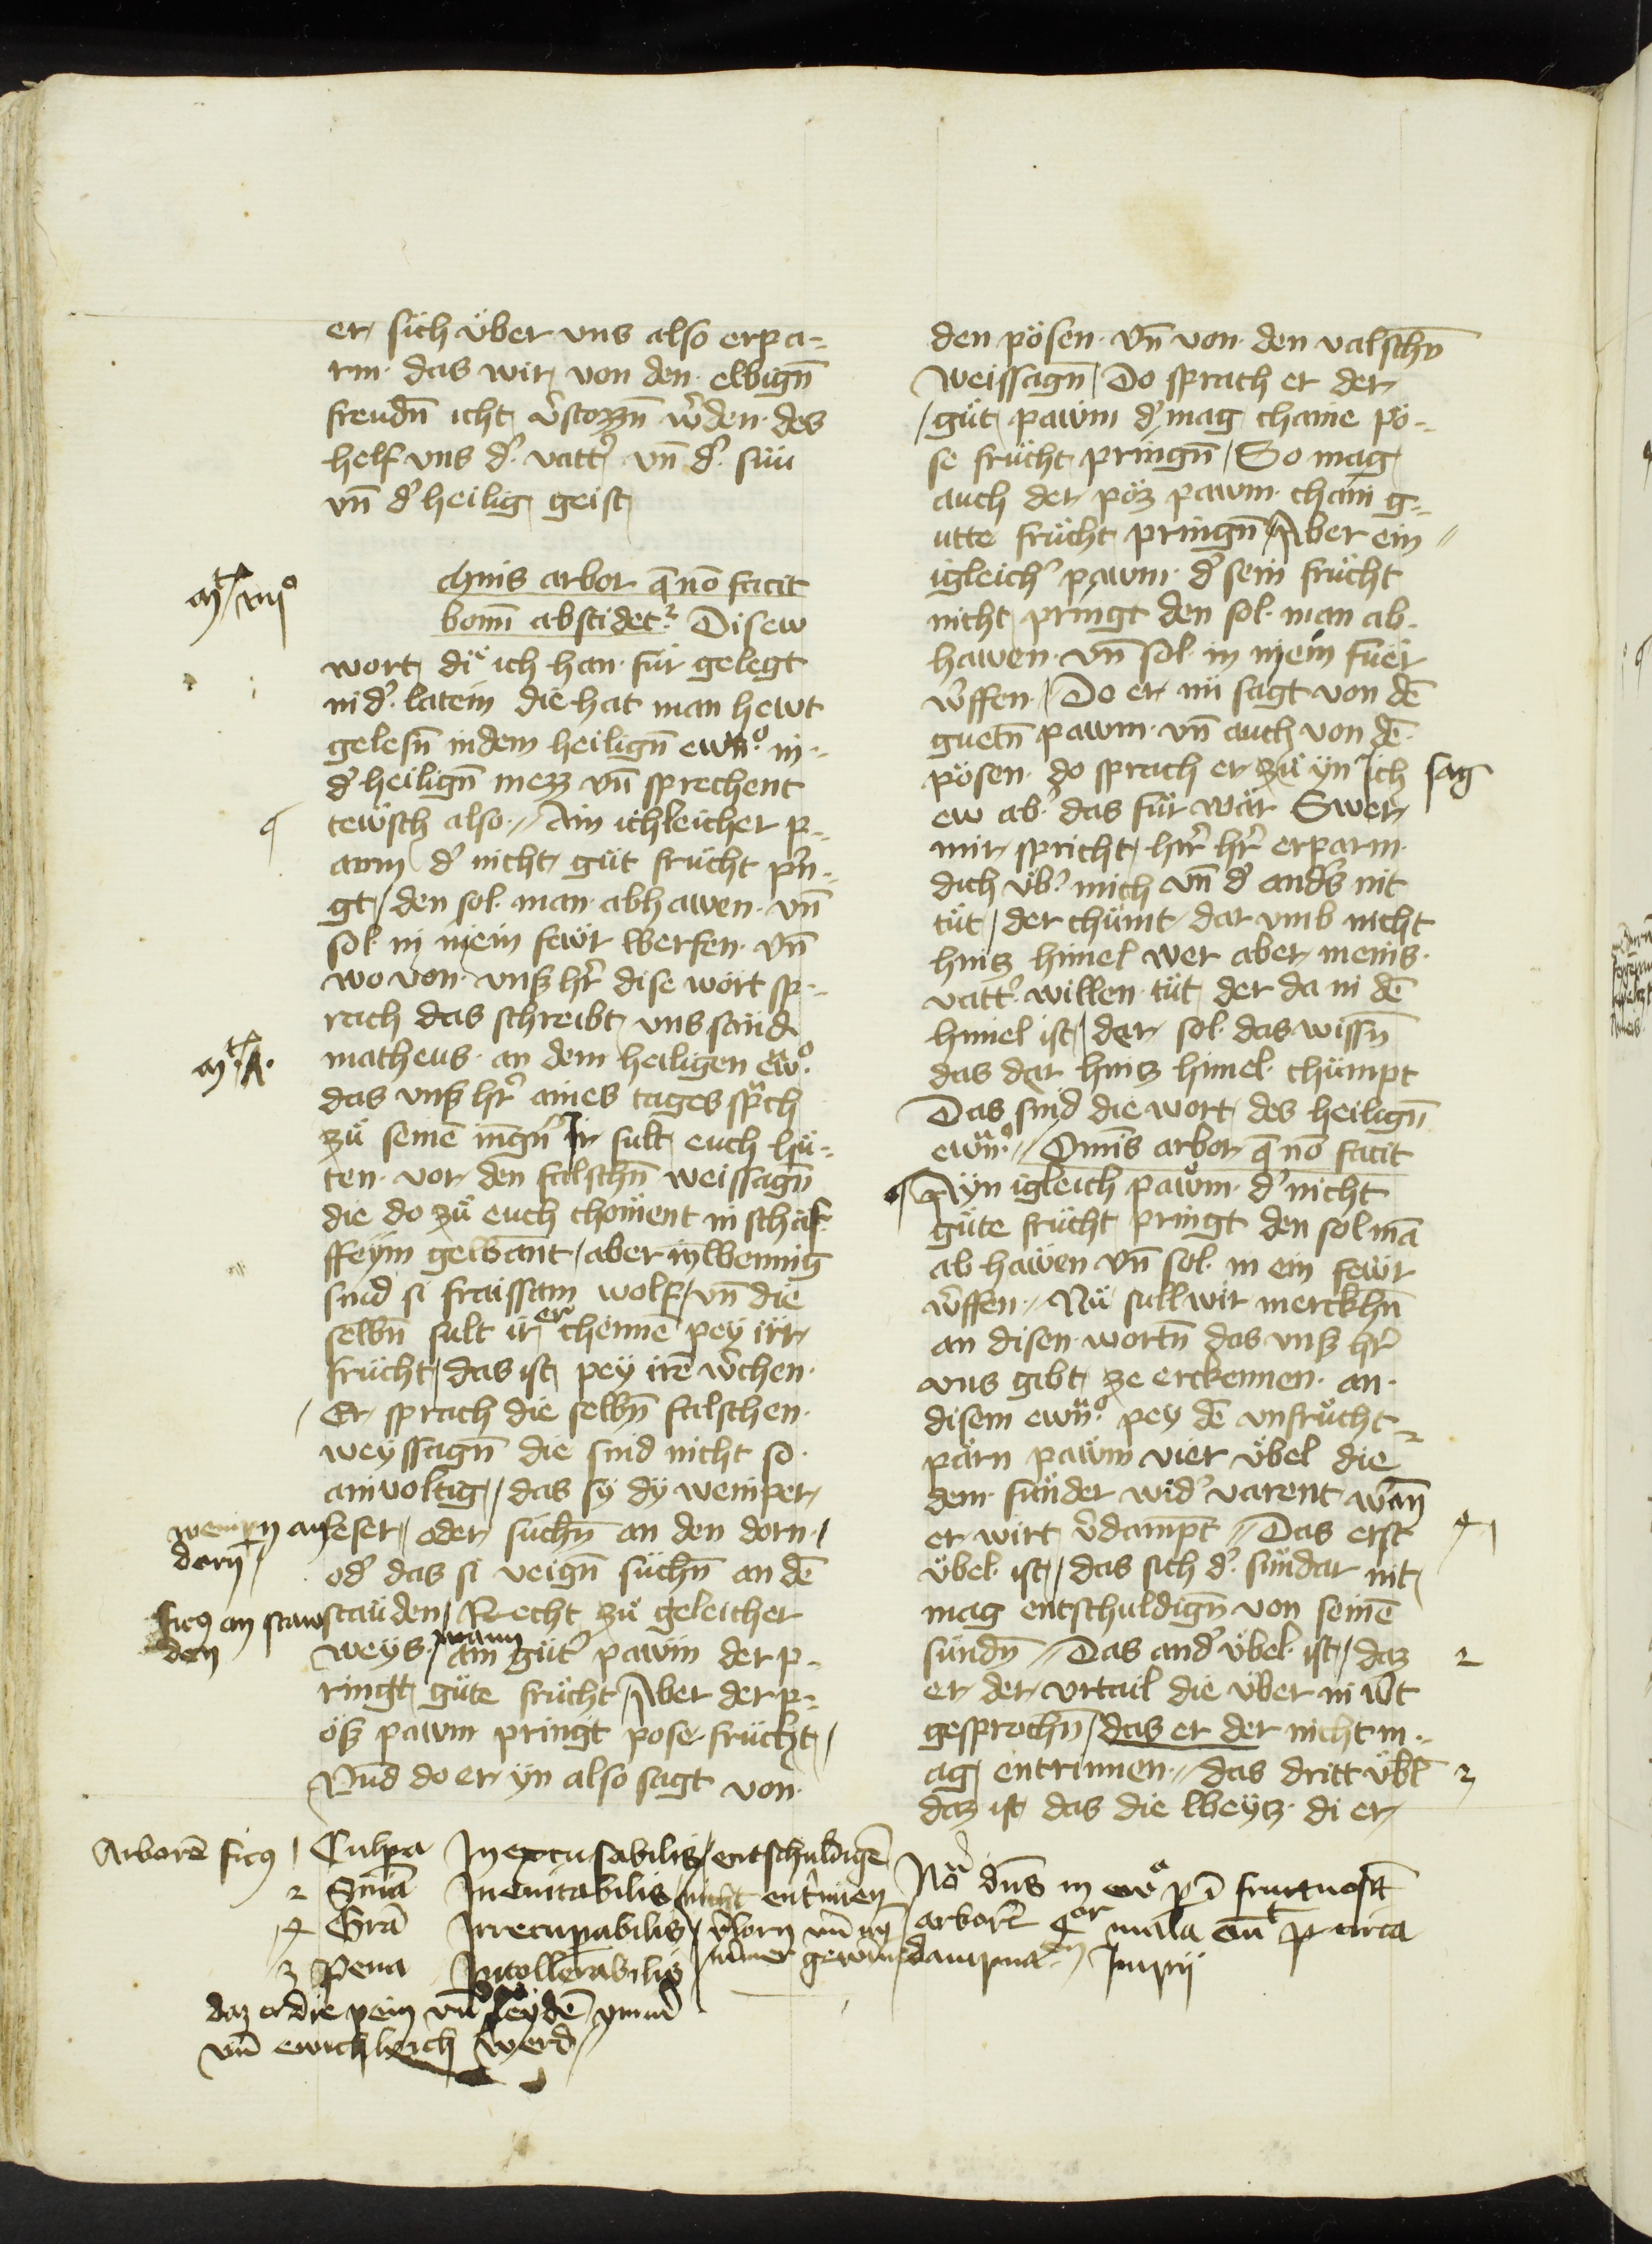 er sich über vns also erpa-
rm das wir von den ewign̄
freudn̄ icht v̓stozzn̄ w̓den des
helf vns d̓ vatt̓ vn̄ d̓ sün
vn̄ d̓ heilig geist
mnis arbor q̄ nō facit
bonū abscidet᷑ Disew
wort di ich han für gelegt
in d̓ latein die hat man hewt
gelesn̄ in dem heilign̄ ewn̄o in
d̓ heilign̄ mezz vn̄ sprechent
tewsch also Ain ichleicher p-
awm d̓ nicht güt frücht prin-
gt den sol man abhawen vn̄
sol in in ein fewr werfen vn̄
wo von vnß hr̄ dise wort sp-
rach das schreibt vns sand
matheus an dem heiligen ewo
das vnß hr̄ aines tages sprach
zü seinē ingn̄ Ir sult euch hü-
ten vor den falschn̄ weissagn̄
die do zü euch choment in schaf
ffeym gewant aber inwennig
sind si fraissam wolf vn̄ die
selbn̄ sult ir erchennē pey irr
frücht das ist pey irē w̓chen
Er sprach die selbn̄ falschen
weyssagn̄ die sind nicht so
ainvoltig das sy dy weinper
leser oder suchn̄ an den dorn
od̓ das si veign̄ suchn̄ an dē
stauden Recht zü geleicher
weys wann ain güt̓ pawm der p-
ringt güte frücht Aber der p-
öß pawm pringt pose frücht
Vnd do er yn also sagt von
mt vii
mt A
weinpn an
dorn
ficus an staw
den
den pösen vn̄ von den valschn̄
weissagn̄ Do sprach er der
güt pawm d̓ mag chaine pö-
se frücht pringn̄ So mag
auch der pöz pawm chain g-
utte frücht pringn̄ Aber ein
igleich̓ pawm d̓ sein frücht
nicht pringt den sol man ab
hawen vn̄ sol in in ein füer
w̓ffen Do er nü sagt von dē
guetn̄ pawm vn̄ auch von dē
pösen do sprach er zü yn Ich sag
ew ab̓ das für wär Swer
mir spricht hr̄ hr̄ erparm
dich üb̓ mich vn̄ d̓ anders nit
tüt der chümt dar vmb nicht
hinz himel wer aber meins
vatt̓ willen tüt der da in dē
himel ist der sol das wissn̄
das der hinz himel chümpt
Das sind die wort des heilign̄
ewn̄o Omīs arbor q̄ nō facit
Ayn igleich pawm d̓ nicht
güte frücht pringt den sol mā
ab hawen vn̄ sol in ein fewr
w̓ffen Nü sull wir merckhn̄
an disen wortn̄ das vnß hr̄
vns gibt ze erckennen an
disem ewn̄o pey dē vnfrücht
pärn pawm vier übel die
dem sünder wid̓ varent wan̄
er wirt v̓dampt Das erst
übel ist das sich d̓ sündar nit
mag entschuldign̄ von seinē
sündn̄ Das and̓ übel ist daz
er der vrtail die über in wt
gesprochn̄ das er der nicht m-
ag entrinnen das dritt übl
daz ist das die weyz di er
2
3
Arborē ficus 1 Culpa Inexcusabilis entschuldigē
2 Snīa Ineuitabilis nicht entrinnen
4 Grā Irrecupabilis v̓lorn
3 Pena Intollerabilis nimer gewin
daz er die pein vn̄ leydē ymmer
vn̄ ewichleich werd
Nō dn̄s in ewo p̄ īfructuosā
arborē q̄ mala
dampnā Impii